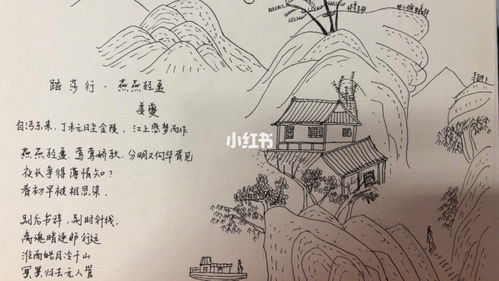 踏莎行·燕燕轻盈
姜夔
自沔东来,丁未元日至金陵,江上感梦而作
燕燕轻盈 莺莺娇软,分明又向华胥见
夜长争得薄情知?
春初早被相思染.
别后书辞,别时针线,
离魂暗逐郎行远
淮南皓月冷千山
冥冥归去无人管
小红书